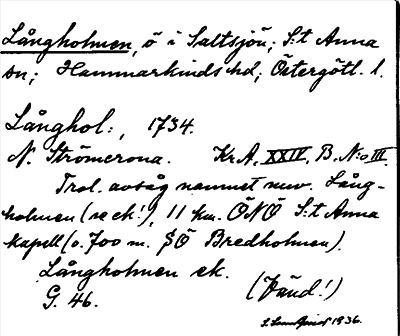 Långholmen, ö i Saltsjön; S:t Anna
sn; Hammarkinds hd; Östergötl. l.
Långhol:, 1734.
N. Strömerona. Kr.A. XXIV, B. N:o III.
Trol. avsåg namnet nuv. Lång-
holmen (se ek!), 11 km. ÖNÖ S:t Anna
kapell (o. 700 m. SÖ Bredholmen).
Långholmen ek.
G. 46.
(Vänd!)
1936.